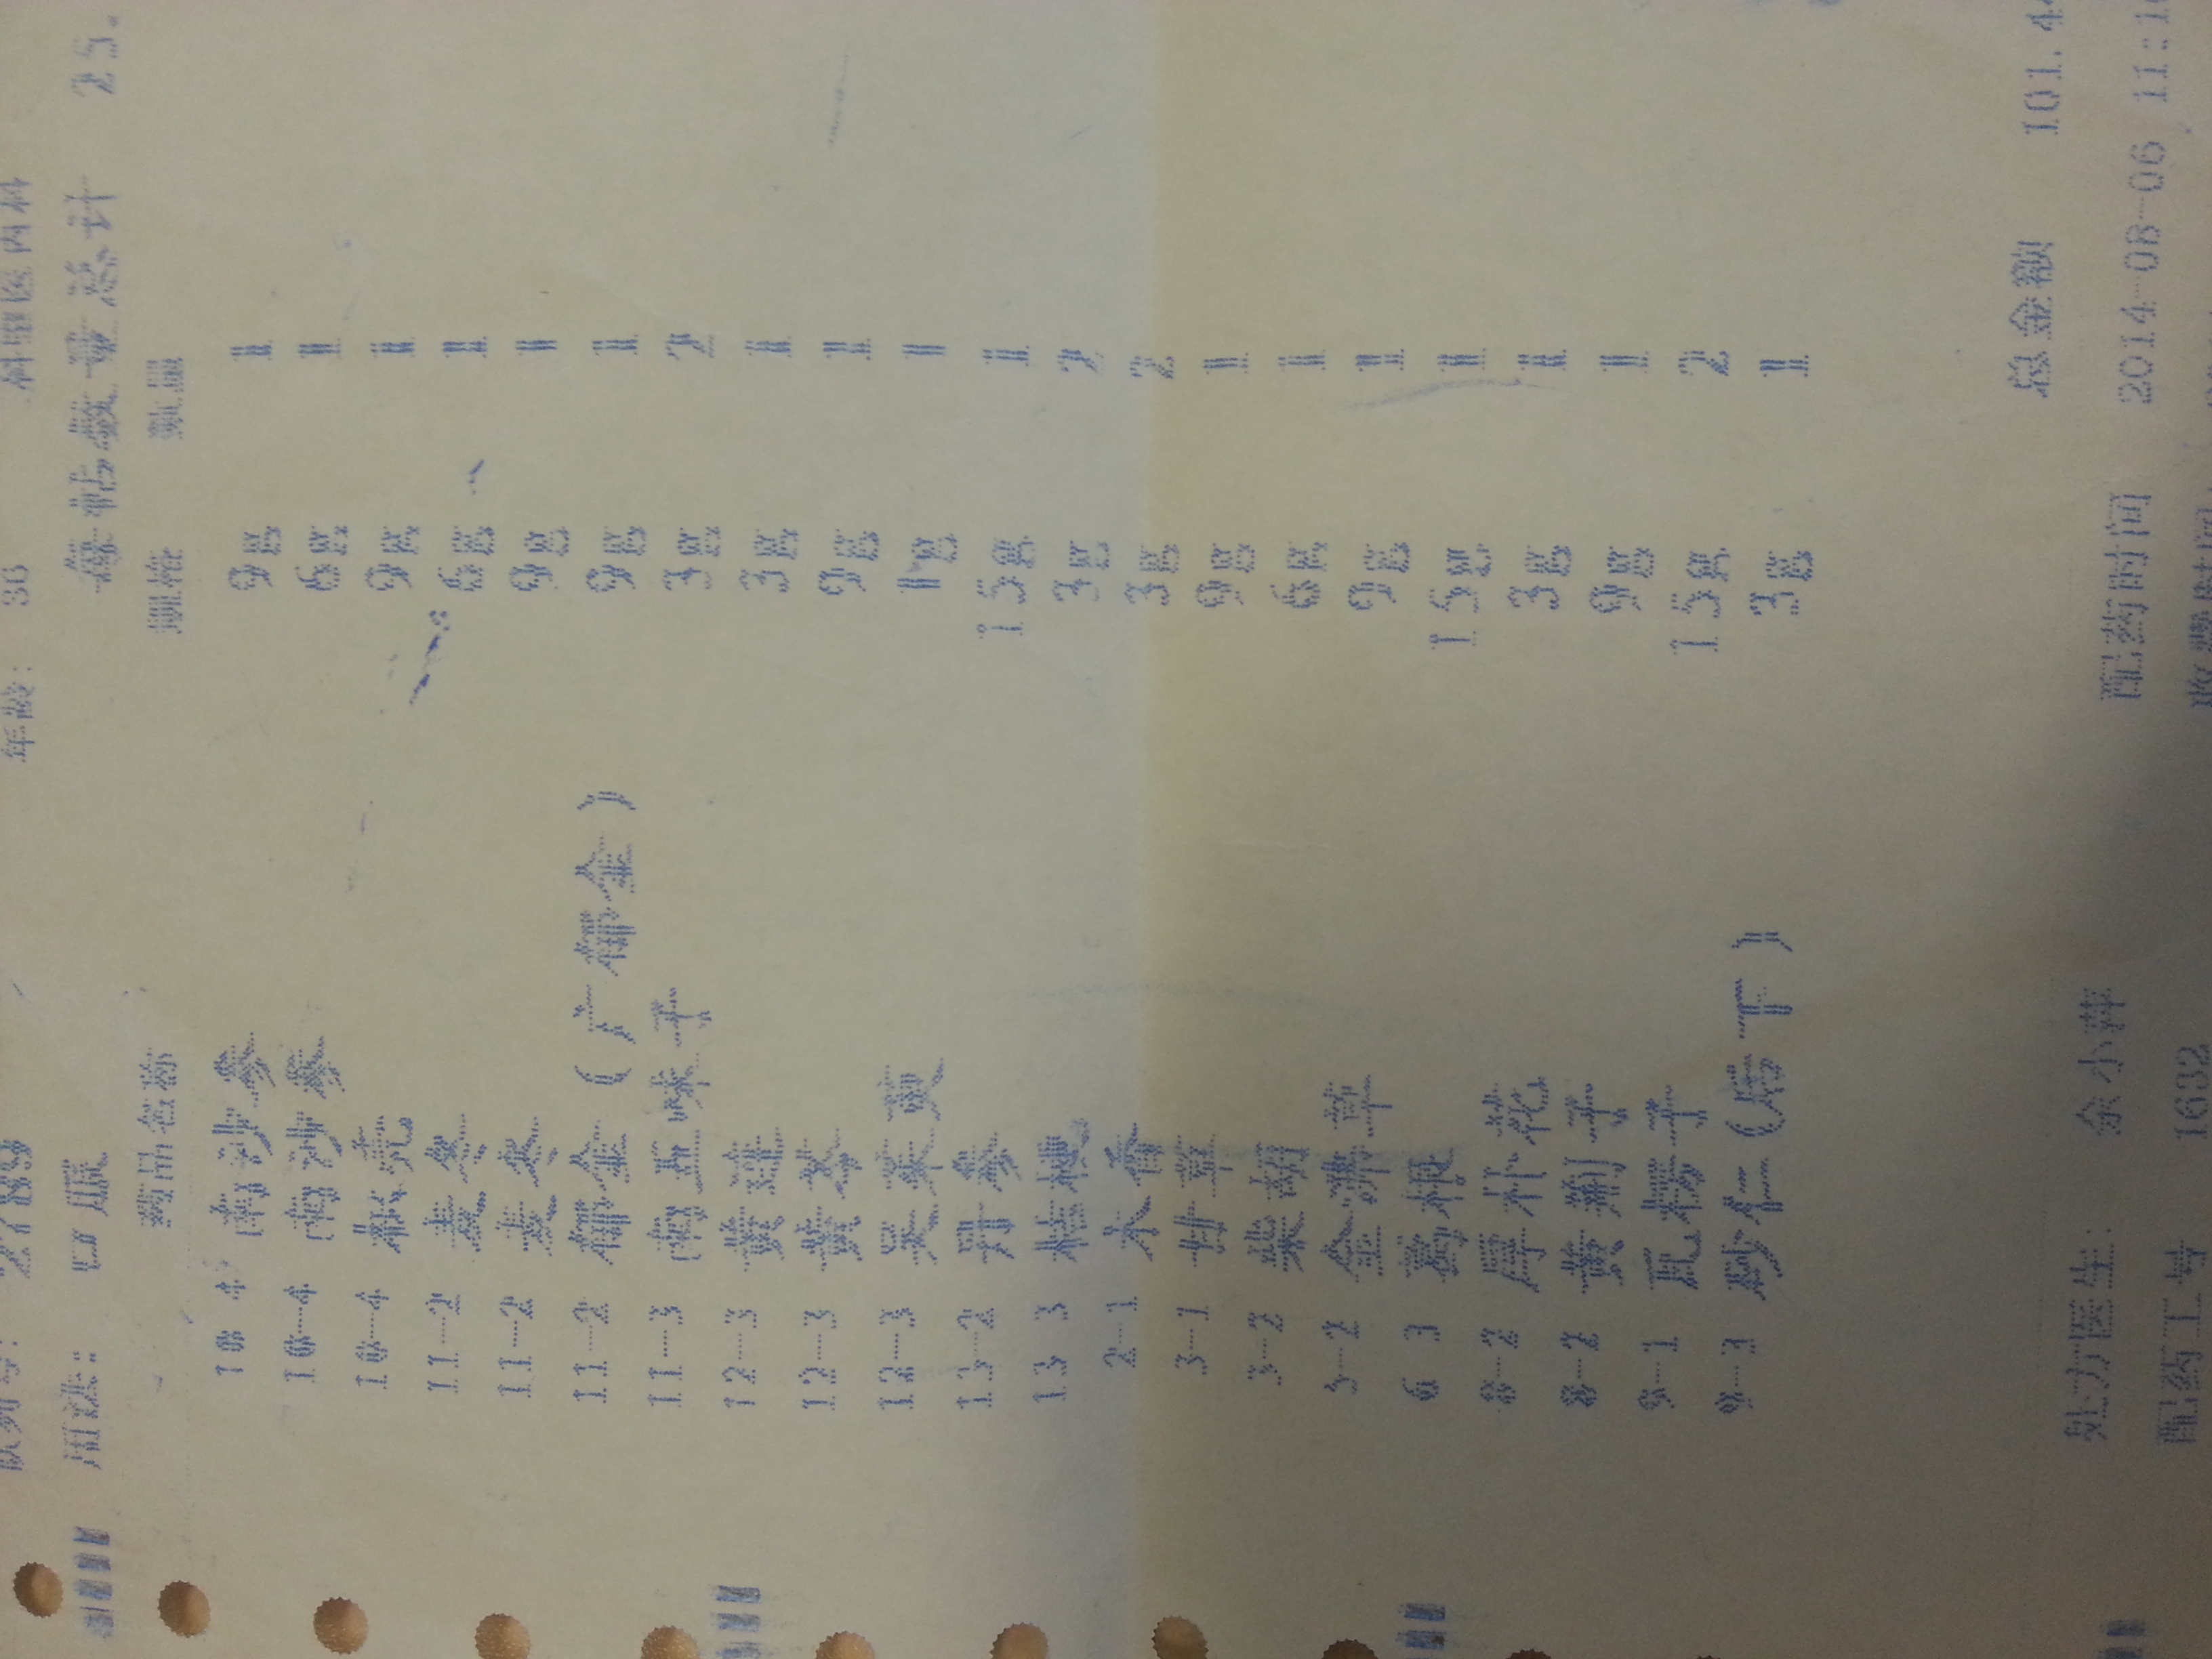 年龄: 36 科室 医内科
用法: 口服 每帖数量总计 25.
药品名称 规格 数量
10-4 南沙参 9g 1
10-4 南沙参 6g 1
10-4 枳壳 9g 1
11-2 6g 1
11-2 9g 1
11-2 郁金(广郁金) 9g 1
11-3 南五味子 3g 2
12-3 黄连 3g 1
12-3 黄芩 9g 1
12-3 吴茱萸 1g 1
13-2 丹参 15g 1
13-3 桂枝 3g 2
2-1 木香 3g 2
3-1 甘草 9g 1
3-2 柴胡 6g 1
金沸草 9g 1
6-3 葛根 15g 1
8-2 厚朴花 3g 1
8-2 黄荆子 9g 1
9-1 瓦楞子 15g 2
9-3 砂仁(后下) 3g 1
总金额 101.4
处方医生: 余小萍 配药时间 2014-08-06 11:1
配药工号 1632